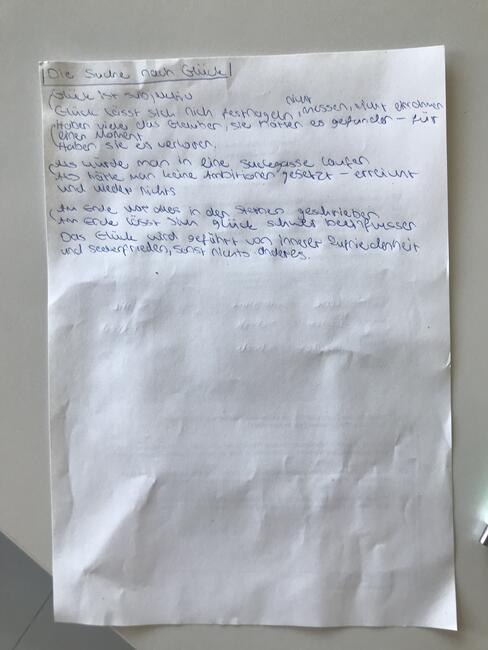 Die Suche nach Glück
Glück ist subjektiv
Glück lässt sich nicht festnageln, nicht messen, nicht
Haben viele das Glauben, sie hätten es gefunden – für
einen Moment
Haben sie es verloren.
Als würde man in eine Sackgasse laufen
Als hätte man keine Ambitionen gesetzt – erreicht
und wieder nichts
Am Ende war alles in den Sternen geschrieben
Am Ende lässt sich glück schwer beeinflussen
Das Glück wird geführt von innerer Zufriedenheit
und seelenfrieden, sonst nichts anderes.